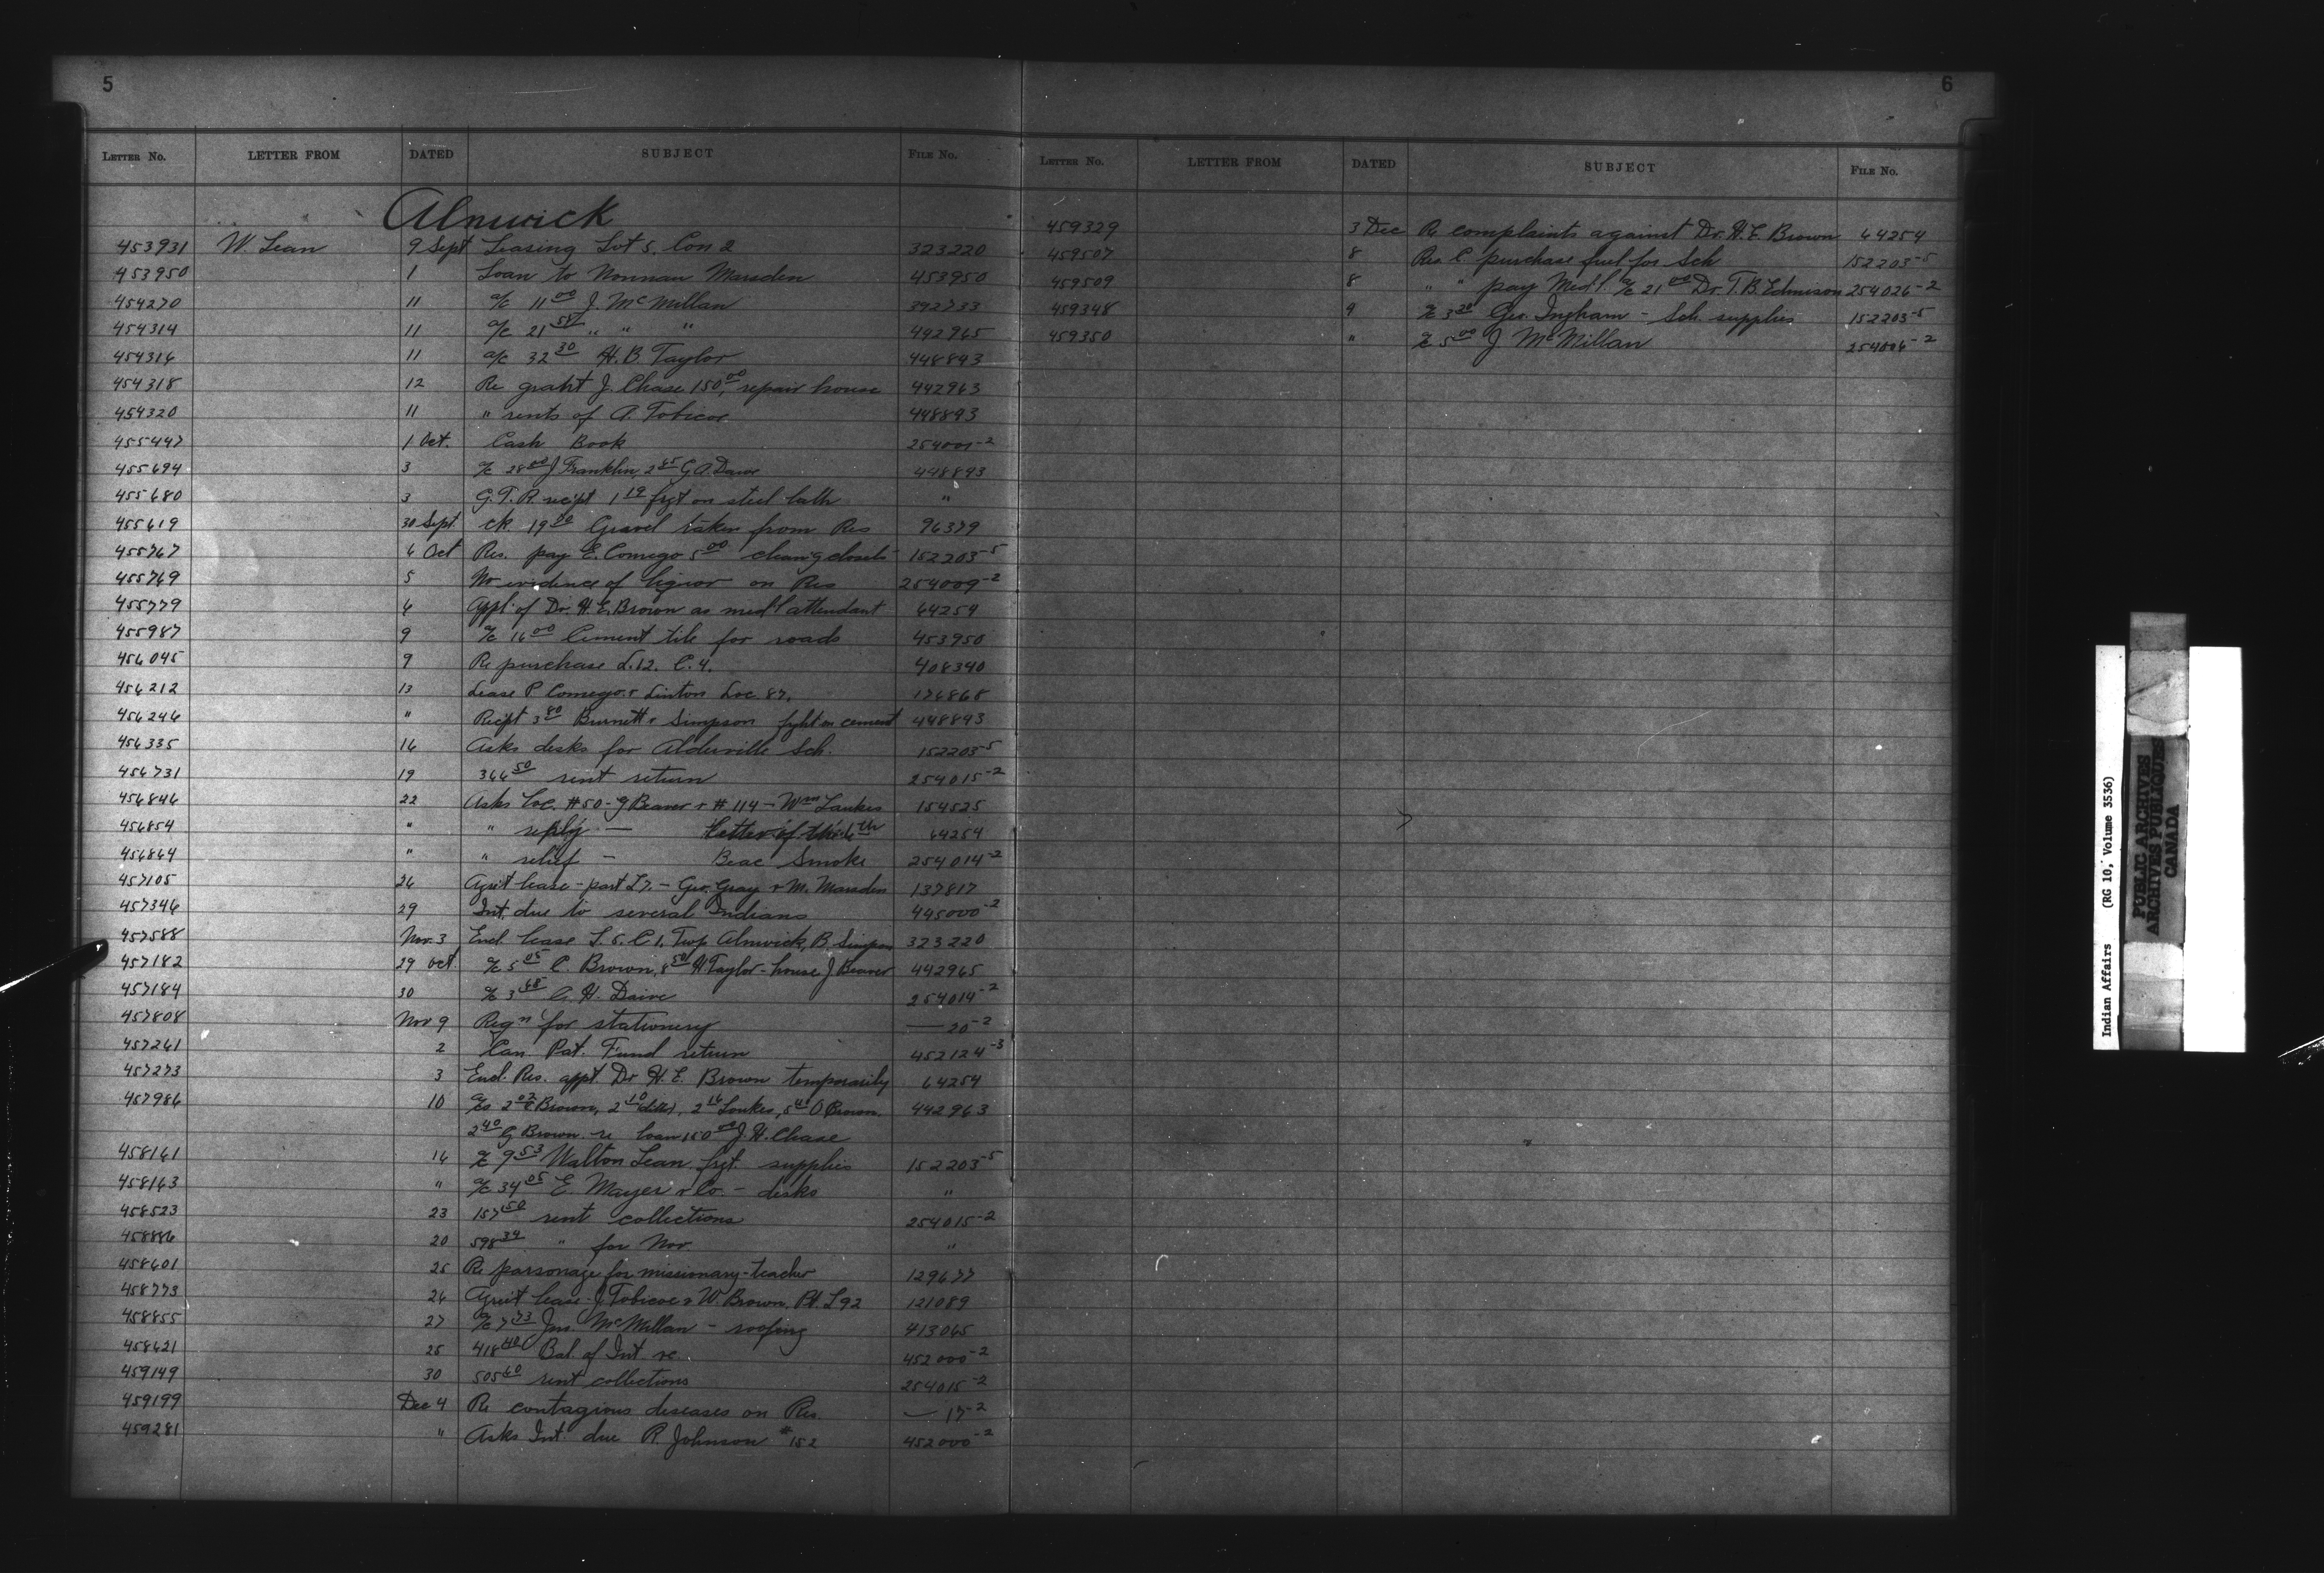 5
LETTER No. LETTER FROM DATED SUBJECT FILE No.
Alnwick
453931 W. Lean 9 Sept Leasing Lot 5, Con 2 323220
453950 1 Loan to Norman Marsden 453950
454270 11 a/c 11 00 J. McMillan 392733
454314 11 a/c 21 58 " " " 442965
454316 11 a/c 32 30 H. B. Taylor 448893
454318 12 Re grant J. Chase 150 00, repair house 442963
454320 11 " rents of A. Tobicoe 448893
455447 1 Oct. Cash Book 254001-2
455694 3 a/c 28 00 J Franklin 2 85 G A Dawe 448893
455680 3 G. T. R recipt 1 19 frgt on steel lath "
455619 30 Sept. ck 19 20 Gravel taken from Res 96379
455767 6 Oct Res. pay E. Comego 5 00 clean'g closets 152203-5
455769 5 No evidence of liquor on Res 254009-2
455779 6 Appl. of Dr. H. E. Brown as med'l attendant 64254
455987 9 a/c 16 00 Cement tile for roads 453950
456045 9 Re purchase L. 12. C. 4. 408340
456212 13 Lease P Comego & Linton Loc. 87. 176868
456246 " Recipt 3 80 Burnett & Simpson frght on cement 448893
456335 16 Asks desks for Alderville Sch. 152203-5
456731 19 366 50 rent return 254015-2
456846 22 Asks Loc. #50 - J Beaver & #114 - Wm Loukes 154525
456854 " " reply — Letter of the 6th 64254
456864 " " relief — Beac Smoke 254014-2
457105 26 Agr't lease - part L7. - Geo. Gray & M. Marsden 137817
457346 29 Int. due to several Indians 445000-2
457588 Nov. 3 Encl. lease L. 5. C 1, Twp Alnwick, B. Simpson 323220
457182 29 Oct. a/c 5 05 C. Brown, 8 50 H. Taylor - house J Beaver 442965
457184 30 a/c 3 68 G. H. Dawe 254014-2
457808 Nov 9 Reqn for stationery — 20-2
457261 2 Can. Pat. Fund return 452124-3
457273 3 Encl. Res. appt Dr H. E. Brown temporarily 64254
457986 10 a/cs 2 02 Brown, 2 10 ditto, 2 16 Loukes, 5 40 O Brown. 442963
2 40 G Brown re loan 150 00 J. H. Chase
458161 16 a/c 9 53 Walton Lean frgt. supplies 152203-5
458163 " a/c 34 05 E. Mayer & Co. - disks "
458523 23 157 50 rent collections 254015-2
458886 20 598 39 " for Nov. "
458601 25 Re parsonage for missionary-teacher 129677
458773 26 Agree't lease J Tobicoe & W. Brown, Pt. L92 121089
458855 27 a/c 7 73 Jno McMillan - roofing 413065
458621 25 418 40 Bal. of Int re 452000-2
459149 30 505 60 rent collections 254015-2
459199 Dec 4 Re contagious diseases on Res — 17-2
459281 " Asks Int due R. Johnson #152 452000-2
6
LETTER No. LETTER FROM DATED SUBJECT FILE No.
459329 3 Dec Re complaints against Dr. H. E. Brown 64254
459507 8 Res C purchase fuel for Sch 152203-5
459509 8 " " pay Med'l a/c 21 00 Dr. T. B. Edmison 254026-2
459348 9 a/c 3 20 Geo. Ingham - Sch. supplies 152203-5
459350 " a/c 5 00 J McMillan 254006-2
Indian Affairs (RG 10, Volume 3536)
PUBLIC ARCHIVES
ARCHIVES PUBLIQUES
CANADA